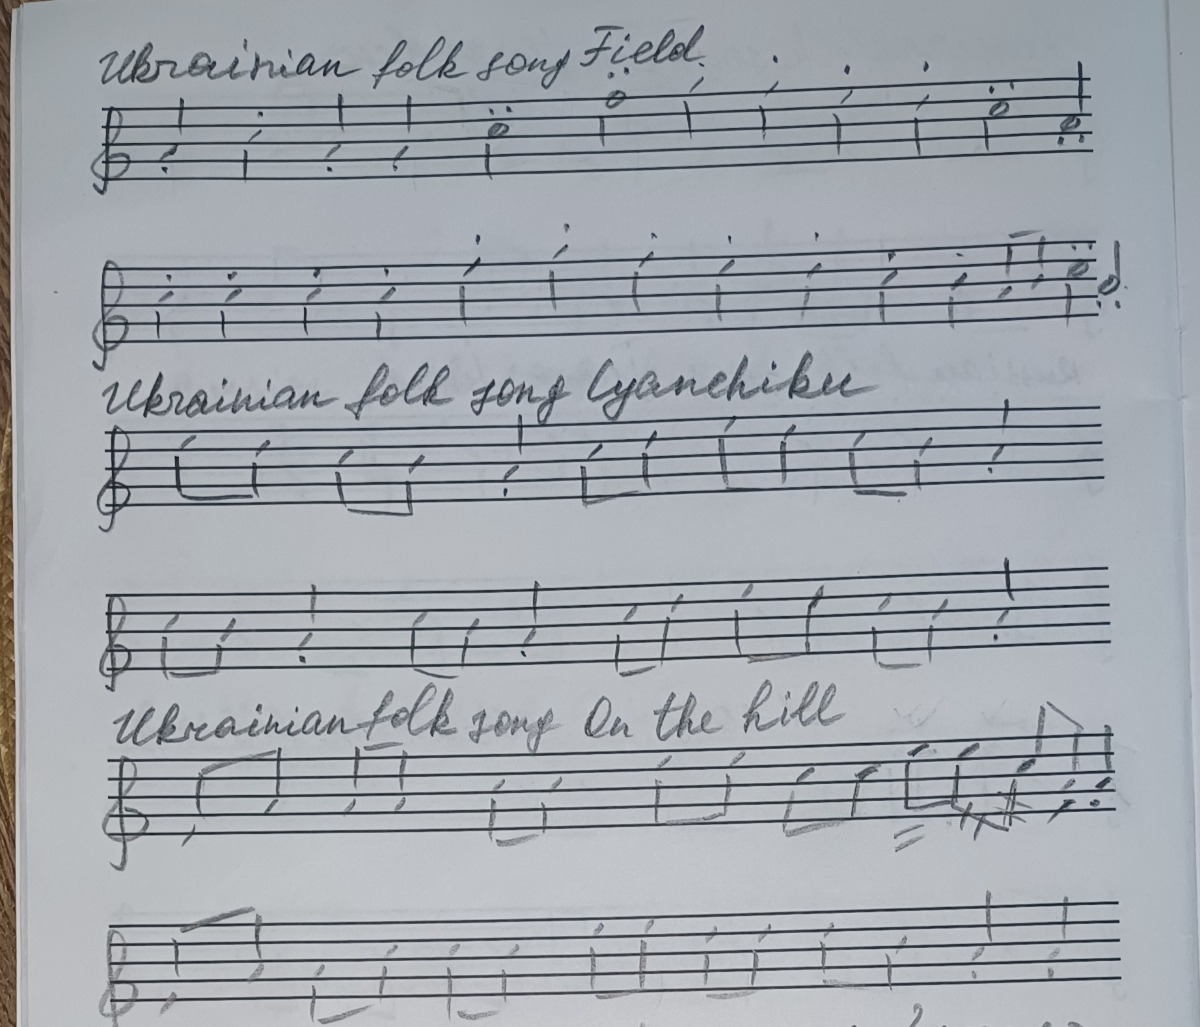 Ukrainian folk song Field
Ukrainian folk song Lyanchiku
Ukrainian folk song On the hill